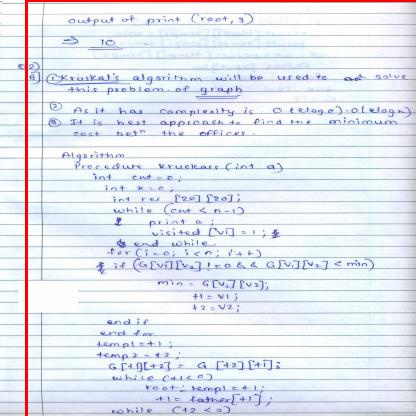 output of print (root, 3)
⇒ 10
Q 2)
B] ① Kruskal's algorithm will be used to solve
this problem of graph
② As it has complexity is O(eloge).O(elogn)
③ It is best approach to find the minimum
cost betn the offices.
Algorithm
Procedure kruskals (int a)
int cnt=0;
int x=0;
int res [20][20];
while (cnt < n-1)
print a;
visited [vi] = 1;
end while
for (i=0; i<n; i++)
if (G[v1][v2] != 0 && G[v1][v2] < min)
min = G[v1][v2];
t1 = v1;
t2 = v2;
end if
end for
temp1 = t1;
temp2 = t2;
G[t1][t2] = G[t2][t1];
while (t1<0)
root; temp1 = t1;
t1 = father[t1];
while (t2<0)